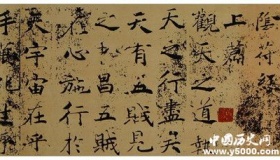 陰符
上篇
觀天之道執
天之行盡矣
天有五賊見
之昌五賊
在心施行於
天宇宙在乎
手萬化生乎
中国历史网
www.y5000.com